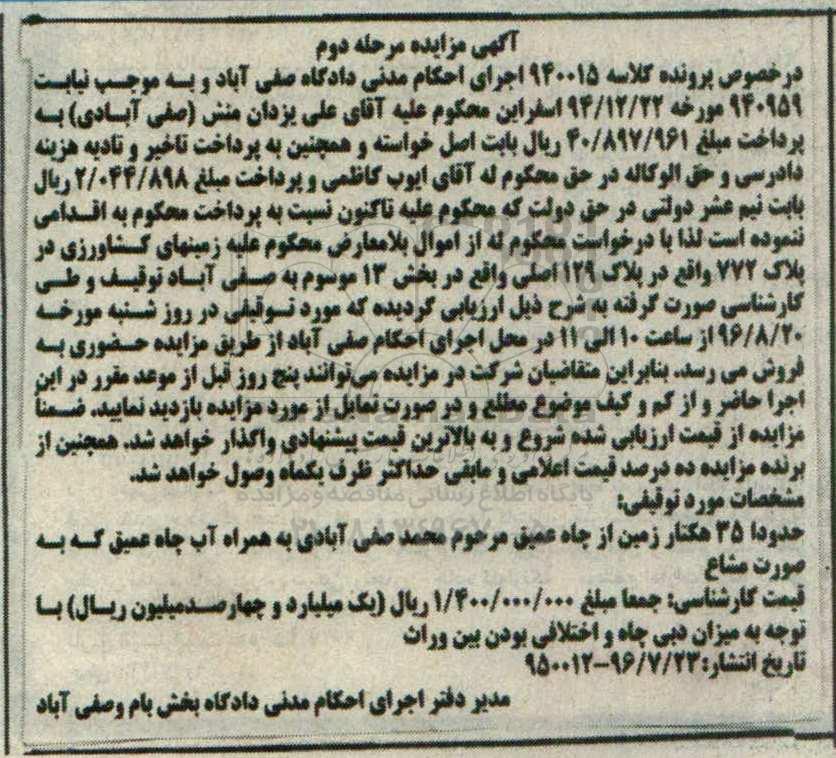 آگهی مزایده مرحله دوم
درخصوص پرونده کلاسه ۹۴۰۰۱۵ اجرای احکام مدنی دادگاه صفی آباد و به موجب نیابت
۹۴۰۹۵۹ مورخه ۹۴/۱۲/۲۲ اسفراین محکوم علیه آقای علی یزدان منش (صفی آبادی) به
پرداخت مبلغ ۴۰/۸۹۷/۹۶۱ ریال بابت اصل خواسته و همچنین به پرداخت تاخیر و تادیه هزینه
دادرسی و حق الوکاله در حق محکوم له آقای ایوب کاظمی و پرداخت مبلغ ۲/۰۴۴/۸۹۸ ریال
بابت نیم عشر دولتی در حق دولت که محکوم علیه تاکنون نسبت به پرداخت محکوم به اقدامی
ننموده است لذا با درخواست محکوم له از اموال بلامعارض محکوم علیه زمینهای کشاورزی در
پلاک ۷۷۲ واقع در پلاک ۱۲۹ اصلی واقع در بخش ۱۳ موسوم به صفی آباد توقیف و طی
کارشناسی صورت گرفته به شرح ذیل ارزیابی گردیده که مورد توقیفی در روز شنبه مورخه
۹۶/۸/۲۰ از ساعت ۱۰ الی ۱۱ در محل اجرای احکام صفی آباد از طریق مزایده حضوری به
فروش می رسد. بنابراین متقاضیان شرکت در مزایده می‌توانند پنج روز قبل از موعد مقرر در این
اجرا حاضر و از کم و کیف موضوع مطلع و در صورت تمایل از مورد مزایده بازدید نمایید. ضمناً
مزایده از قیمت ارزیابی شده شروع و به بالاترین قیمت پیشنهادی واگذار خواهد شد. همچنین از
برنده مزایده ده درصد قیمت اعلامی و مابقی حداکثر ظرف یکماه وصول خواهد شد.
پایگاه اطلاع رسانی مناقصه و مزایده
مشخصات مورد توقیفی:
حدودا ۳۵ هکتار زمین از چاه عمیق مرحوم محمد صفی آبادی به همراه آب چاه عمیق که به
صورت مشاع
قیمت کارشناسی: جمعا مبلغ ۱/۴۰۰/۰۰۰/۰۰۰ ریال (یک میلیارد و چهارصدمیلیون ریال) با
توجه به میزان دبی چاه و اختلافی بودن بین وراث
تاریخ انتشار: ۹۶/۷/۲۳-۹۵۰۰۱۲
مدیر دفتر اجرای احکام مدنی دادگاه بخش بام وصفی آباد